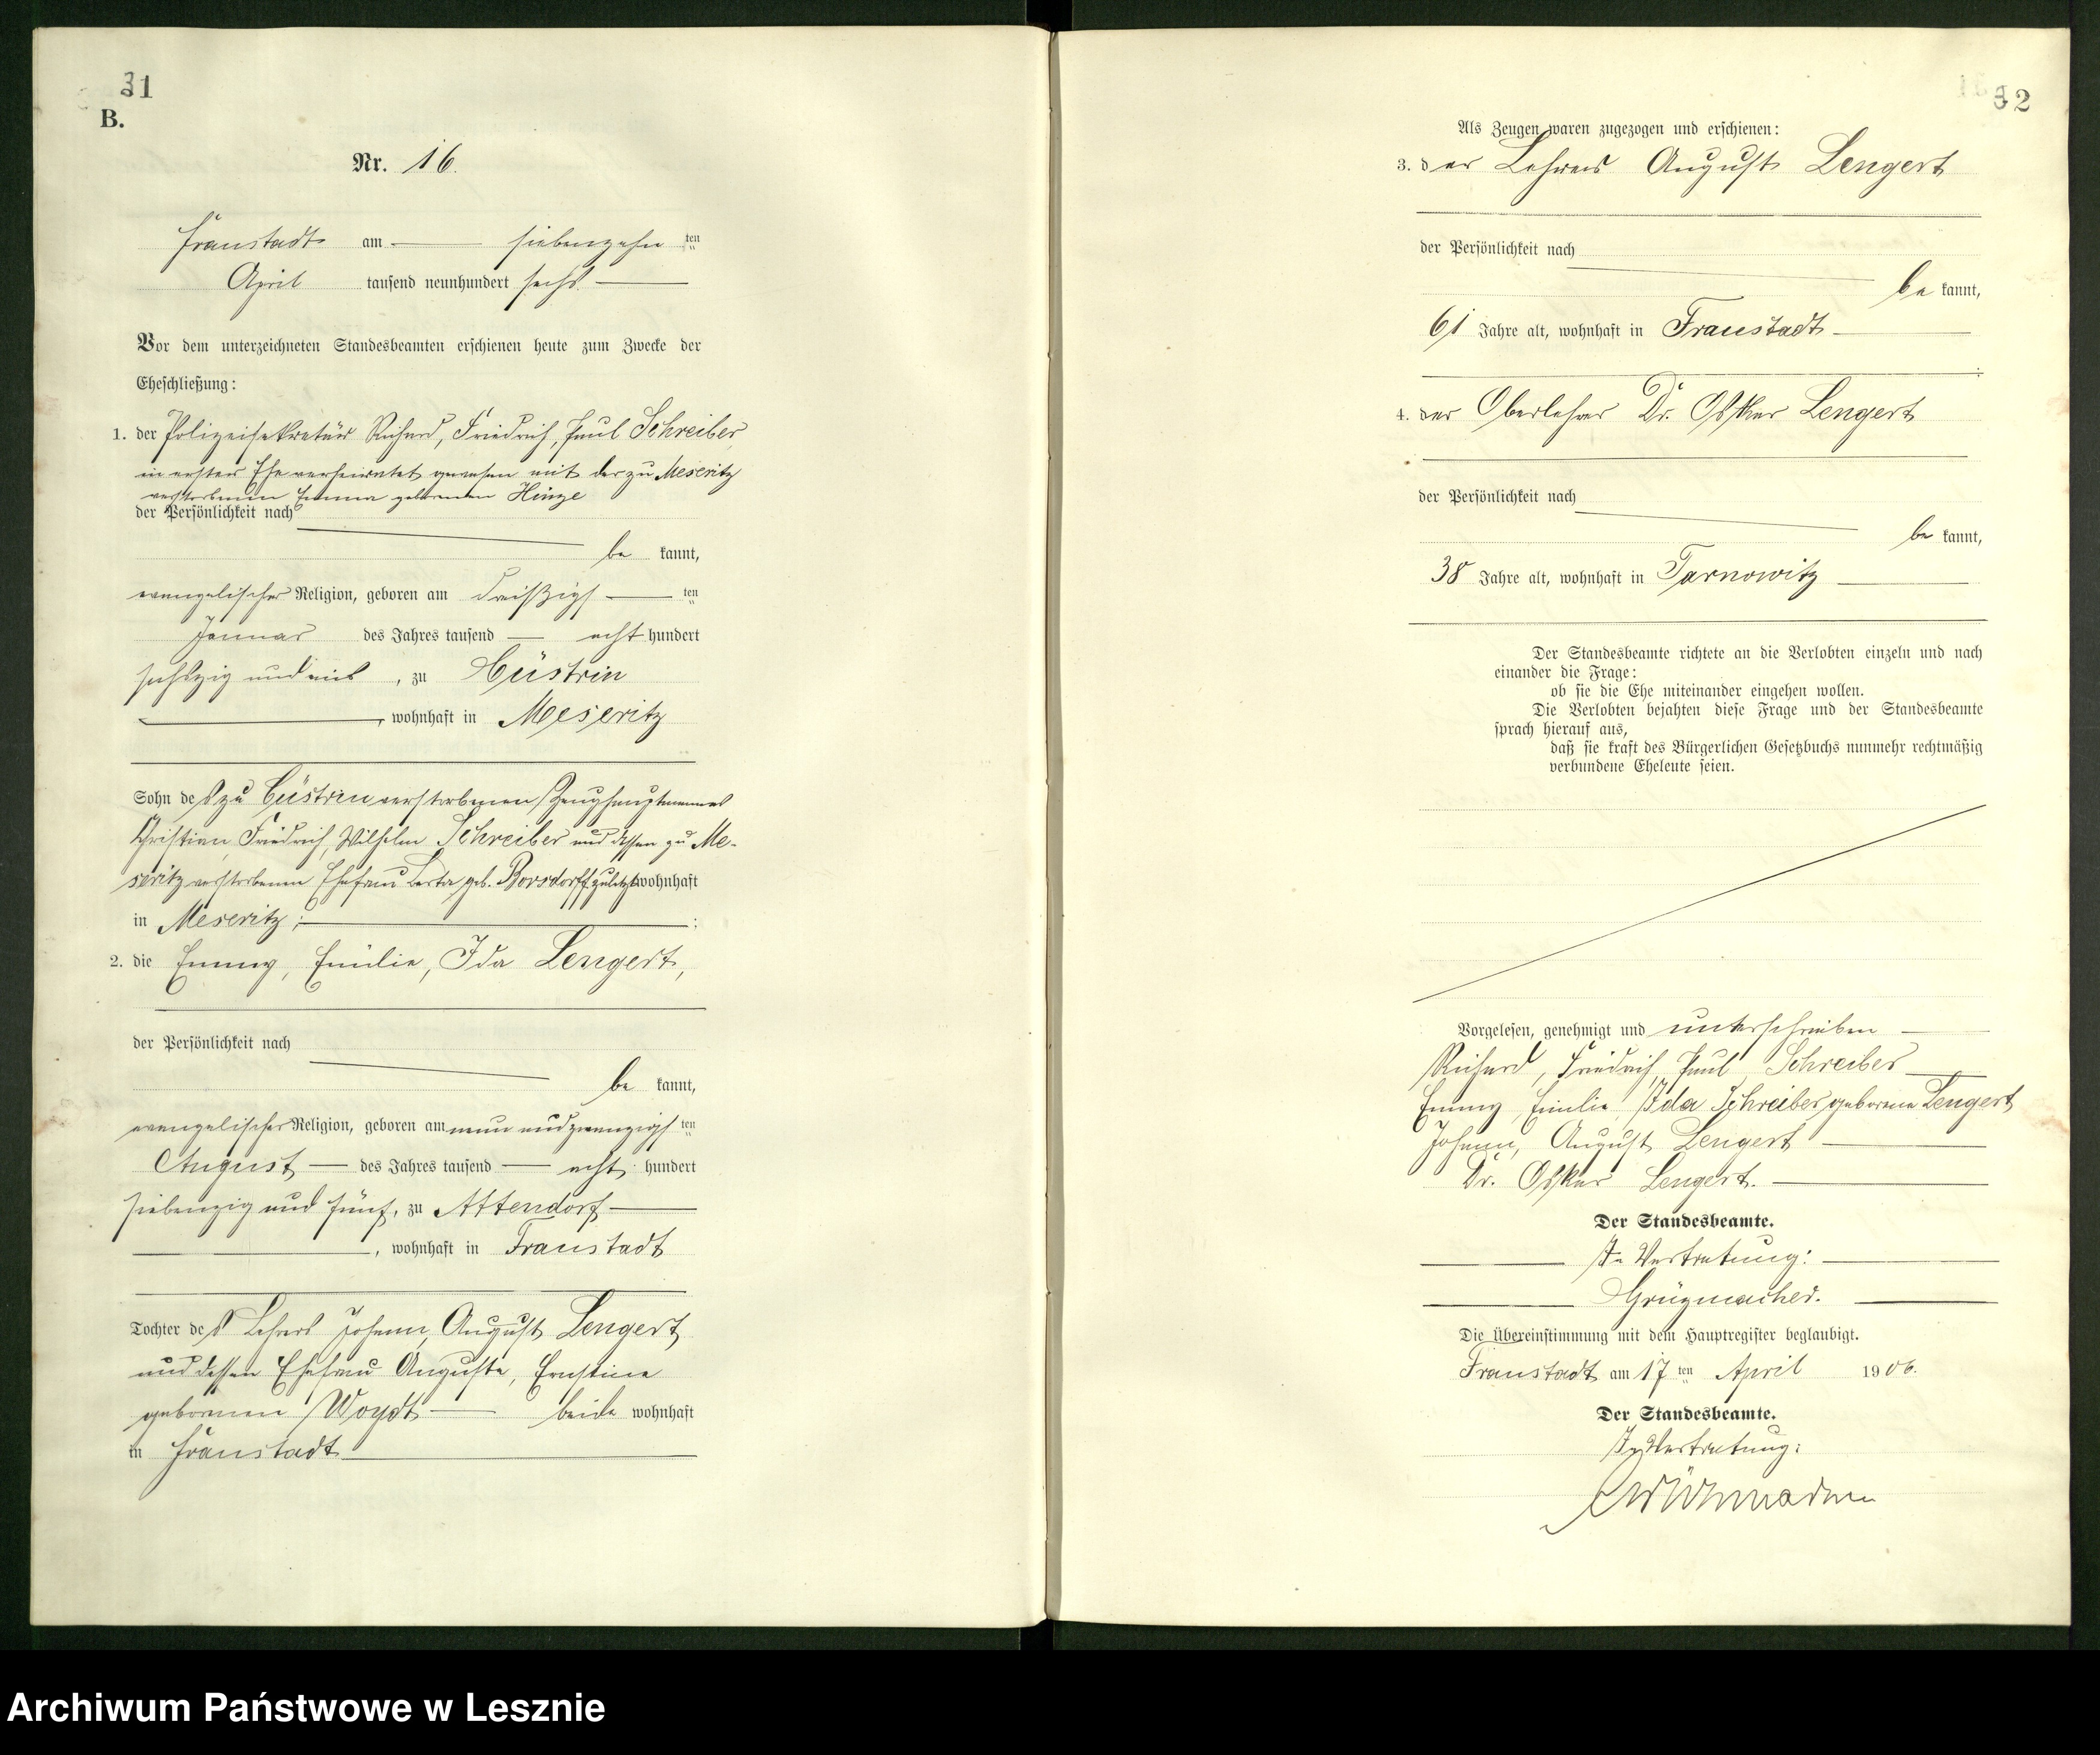 31
B.
Nr. 16.
Fraustadt am siebenzehn ten
April tausend neunhundert sechs
Vor dem unterzeichneten Standesbeamten erschienen heute zum Zwecke der
Eheschließung:
1. der Polizeisekretär Richard, Friedrich, Paul Schreiber
in erster Ehe verheiratet gewesen mit der zu Meseritz
verstorbenen Emma geborenen Hinze
der Persönlichkeit nach
be kannt,
evangelischer Religion, geboren am dreißigs ten
Januar des Jahres tausend acht hundert
sechszig und , zu Cüstrin
, wohnhaft in Meseritz
Sohn des zu Cüstrin verstorbenen Zeughauptmannes
Christian Friedrich, Wilhelm Schreiber und dessen zu Me-
seritz verstorbenen Ehefrau geb. Borsdorff zuletzt wohnhaft
in Meseritz;
2. die Emmy, Emilie, Ida Lengert,
der Persönlichkeit nach
be kannt,
evangelischer Religion, geboren am neun und zwanzigs ten
August des Jahres tausend acht hundert
siebenzig und fünf, zu Attendorf
, wohnhaft in Fraustadt
Tochter des Lehrers Johann, August Lengert
und dessen Ehefrau Auguste, Ernstine
geborenen Woydt beide wohnhaft
in Fraustadt
32
Als Zeugen waren zugezogen und erschienen:
3. der Lehrer August Lengert
der Persönlichkeit nach
be kannt,
61 Jahre alt, wohnhaft in Fraustadt
4. der Oberlehrer Dr. Oskar Lengert
der Persönlichkeit nach
be kannt,
38 Jahre alt, wohnhaft in Tarnowitz
Der Standesbeamte richtete an die Verlobten einzeln und nach
einander die Frage:
ob sie die Ehe miteinander eingehen wollen.
Die Verlobten bejahten diese Frage und der Standesbeamte
sprach hierauf aus,
daß sie kraft des Bürgerlichen Gesetzbuchs nunmehr rechtmäßig
verbundene Eheleute seien.
Vorgelesen, genehmigt und unterschrieben
Richard, Friedrich, Paul Schreiber
Emmy Emilie Ida Schreiber geborene Lengert
Johann, August Lengert
Dr. Oskar Lengert.
Der Standesbeamte.
In Vertretung:
Grüzmacher.
Die Übereinstimmung mit dem Hauptregister beglaubigt.
Fraustadt am 17 ten April 1906.
Der Standesbeamte.
In Vertretung:
Archiwum Państwowe w Lesznie